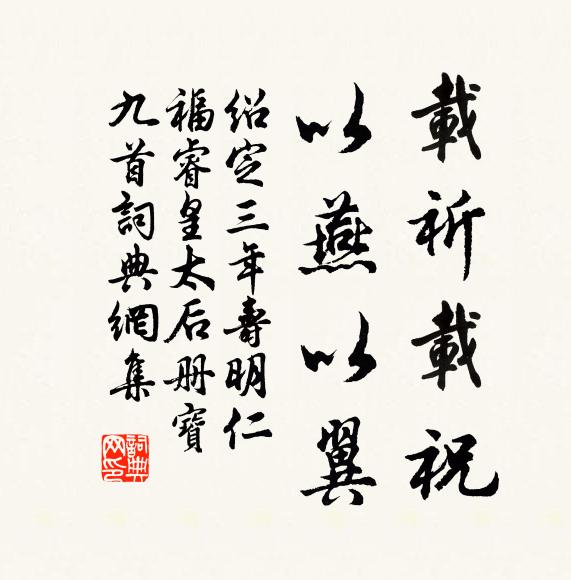 載祈載祝
以燕以翼
紹定三年壽明仁
福睿皇太后册寶
九首詞典網集
詞典网印